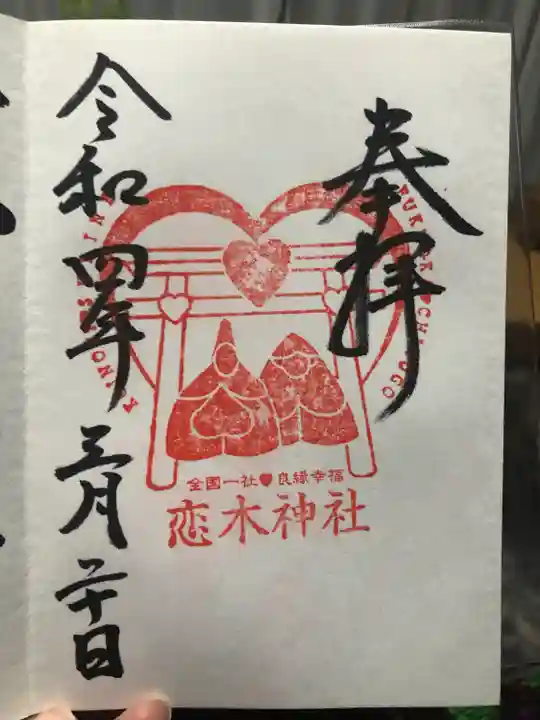 奉拝
KOINOKI SHRINE
FUKUOKA CHIKUGO
全国一社♥良縁幸福
恋木神社
令和四年三月二十日